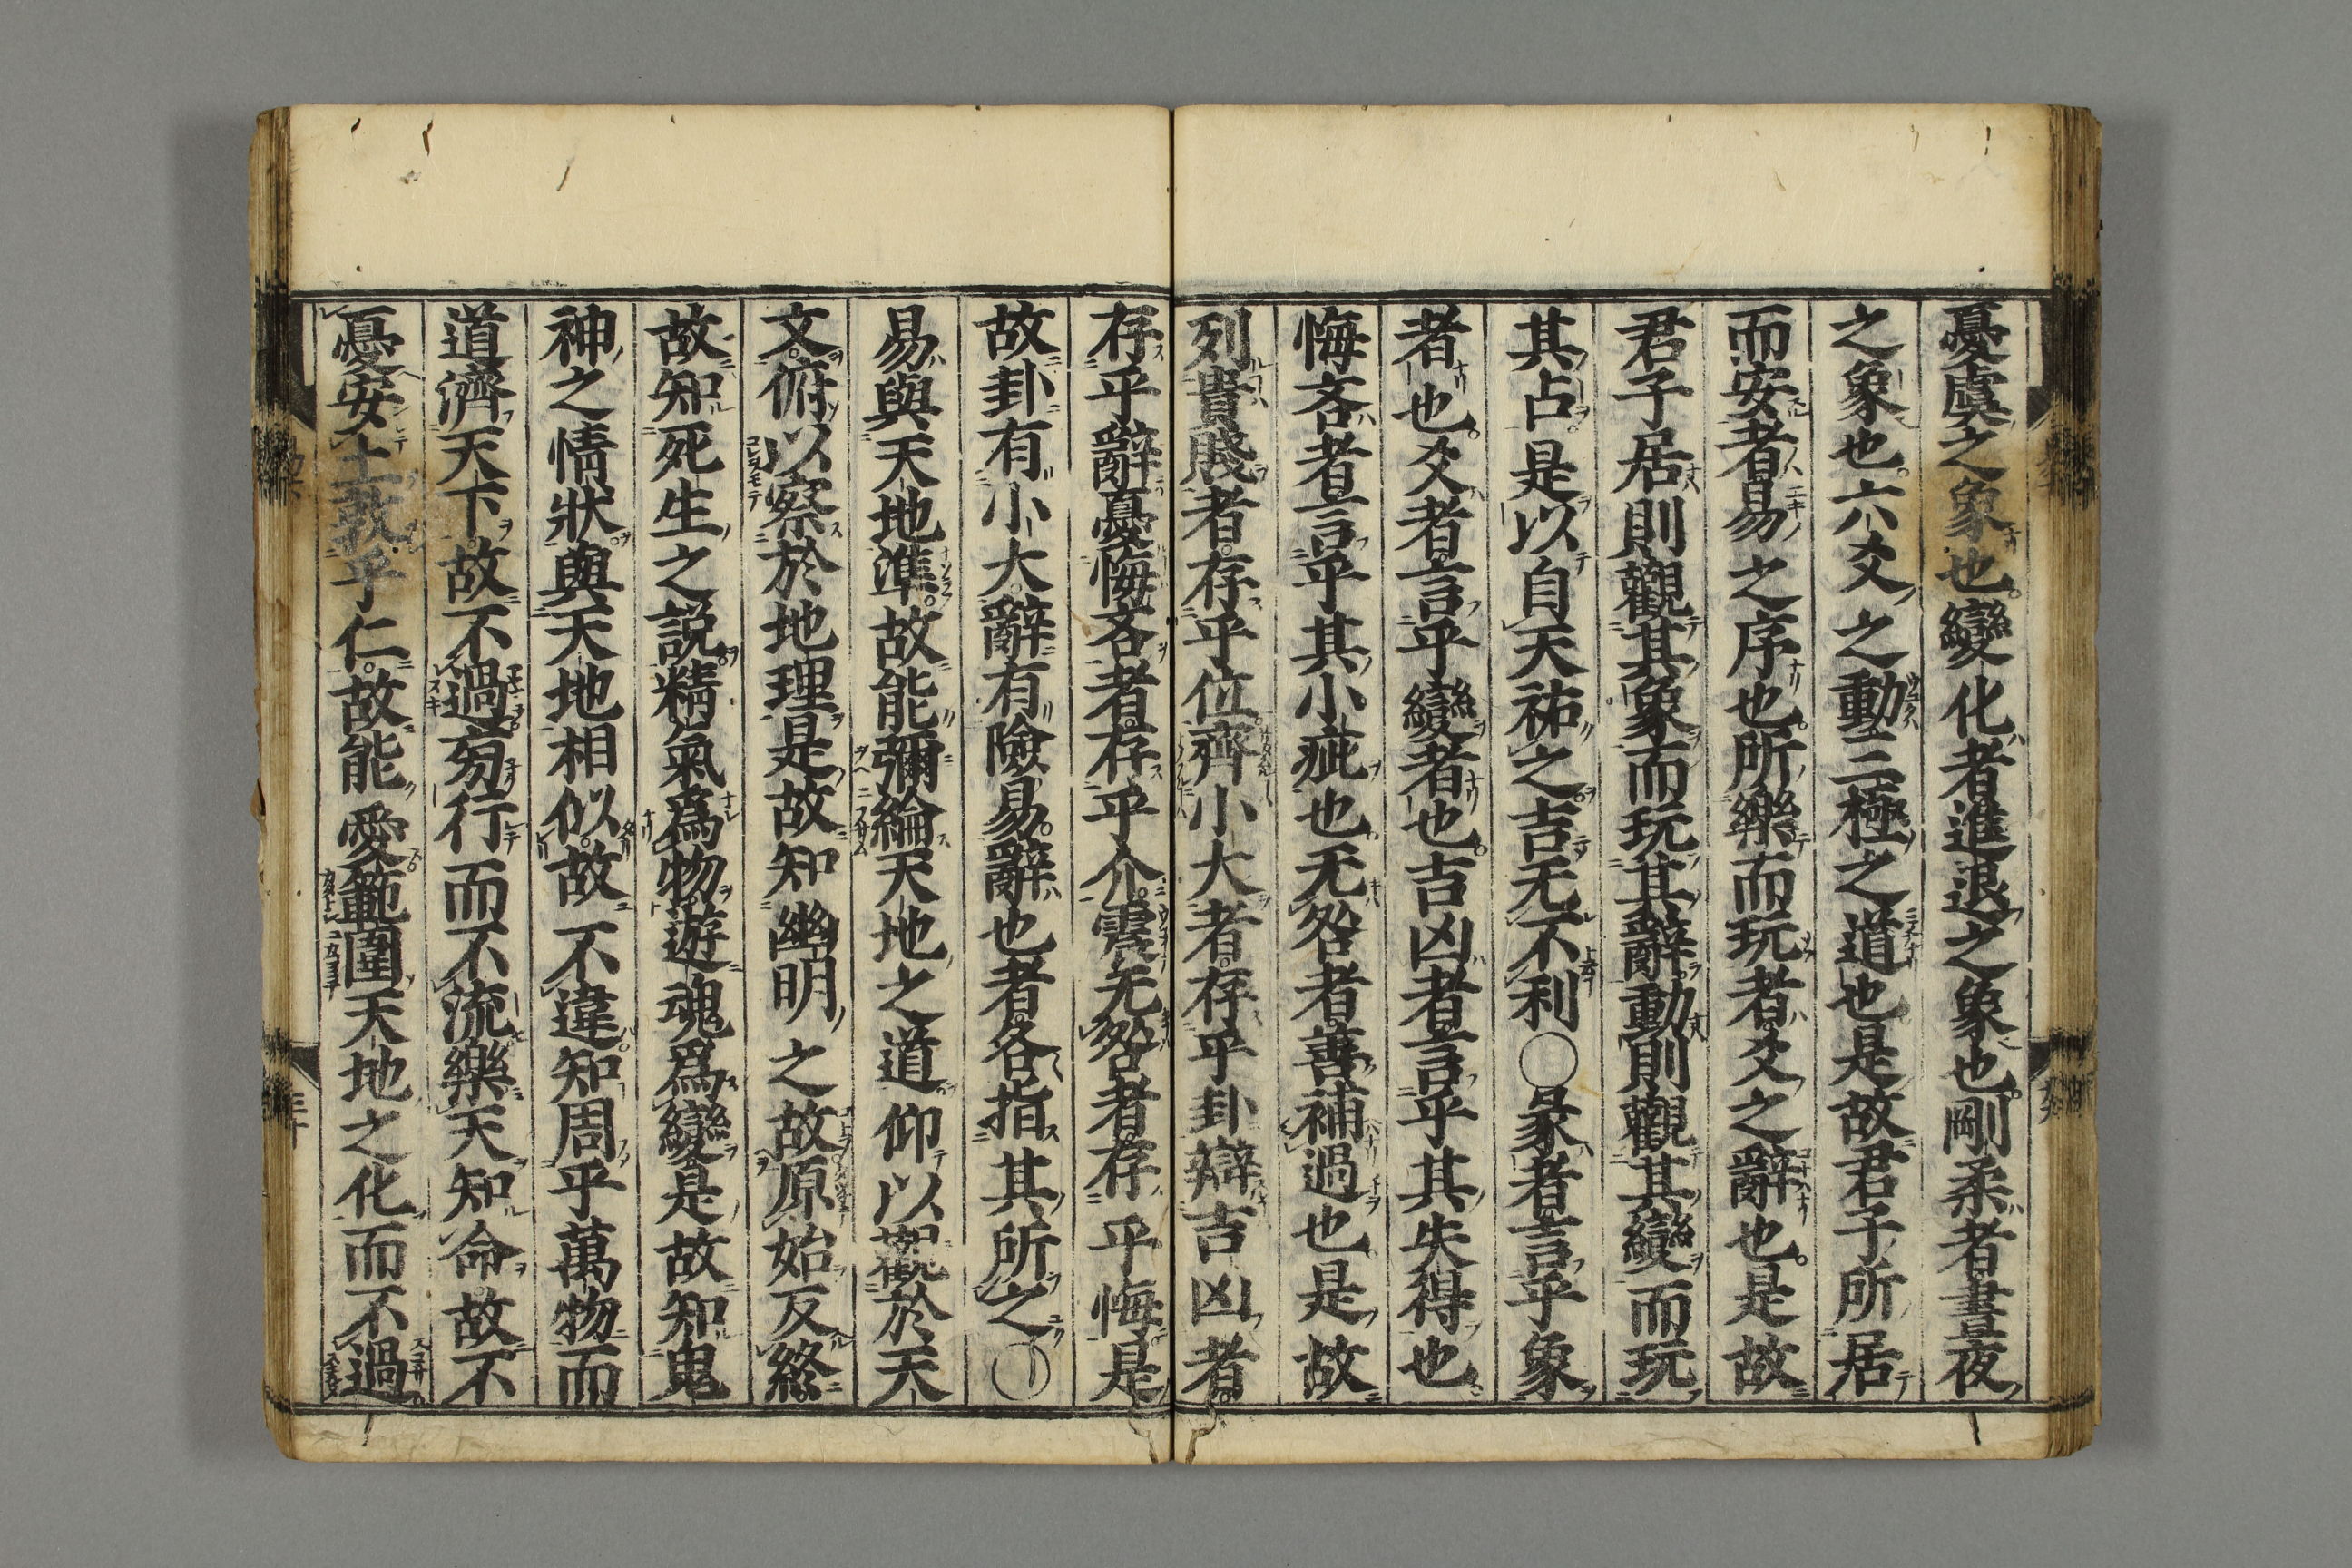 憂虞之象也變化者進退之象也剛柔者晝夜
之象也六爻之動三極之道也是故君子所居
而安者易之序也所樂而玩者爻之辭也是故
君子居則觀其象而玩其辭動則觀其變而玩
其占是以自天祐之吉无不利〇彖者言乎象
者也爻者言乎變者也吉凶者言乎其失得也
悔吝者言乎其小疵也无咎者善補過也是故
列貴賤者存乎位齊小大者存乎卦辯吉凶者
存乎辭憂悔吝者存乎介震无咎者存乎悔是
故卦有小大辭有險易辭也者各指其所之〇
易與天地準故能彌綸天地之道仰以觀於天
文俯以察於地理是故知幽明之故原始反終
故知死生之説精氣爲物遊魂爲變是故知鬼
神之情狀與天地相似故不違知周乎萬物而
道濟天下故不過旁行而不流樂天知命故不
憂安土敦乎仁故能愛範圍天地之化而不過